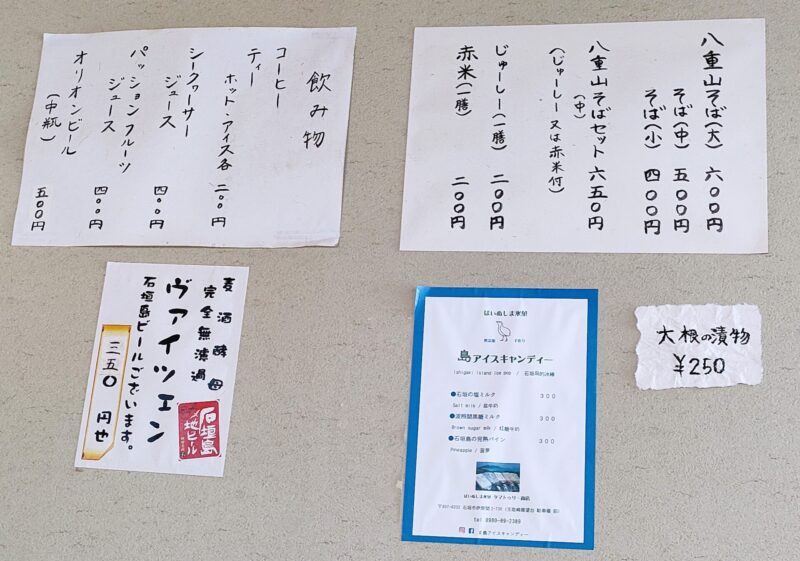 飲み物
コーヒー
ティー
ホット・アイス各 二〇〇円
シークヮーサー
ジュース 四〇〇円
パッションフルーツ
ジュース 四〇〇円
オリオンビール
(中瓶) 五〇〇円
八重山そば(大) 六〇〇円
そば(中) 五〇〇円
そば(小) 四〇〇円
八重山そばセット 六五〇円
(中)
(じゅーしー又は赤米付)
じゅーしー(一膳) 二〇〇円
赤米(一膳) 二〇〇円
麦酒酵母
完全無濾過
ヴァイツェン
石垣島ビールございます。
三五〇円也
石垣島
地ビール
はいぬしま氷菓
島アイスキャンディー
Ishigaki Island ice pop / 石垣岛的冰棒
●石垣の塩ミルク 300
Salt milk / 盐牛奶
●波照間黒糖ミルク 300
Brown sugar milk / 红糖牛奶
●石垣島の完熟パイン 300
Pineapple / 菠萝
tel 0980-89-2389
島アイスキャンディー
大根の漬物
¥250